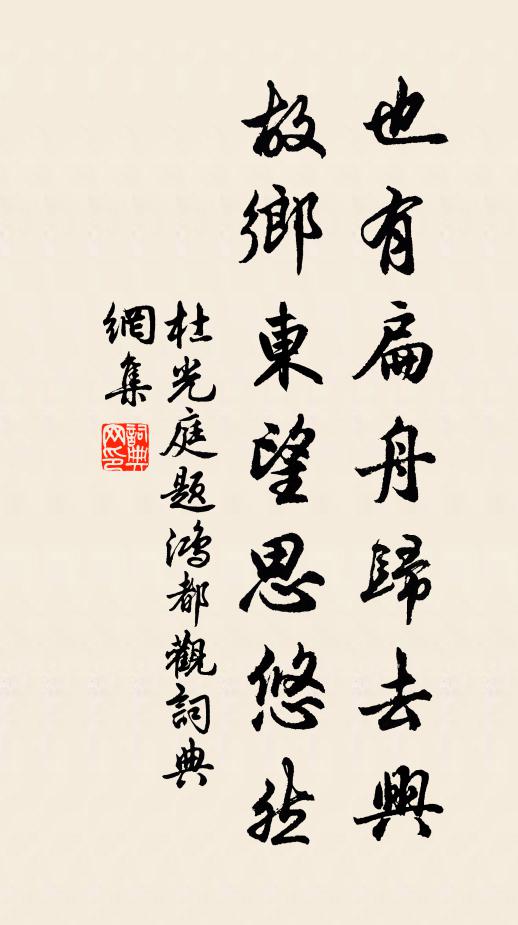 也有扁舟歸去興
故鄉東望思悠然
杜光庭題鴻都觀詞典
網集
詞典網印